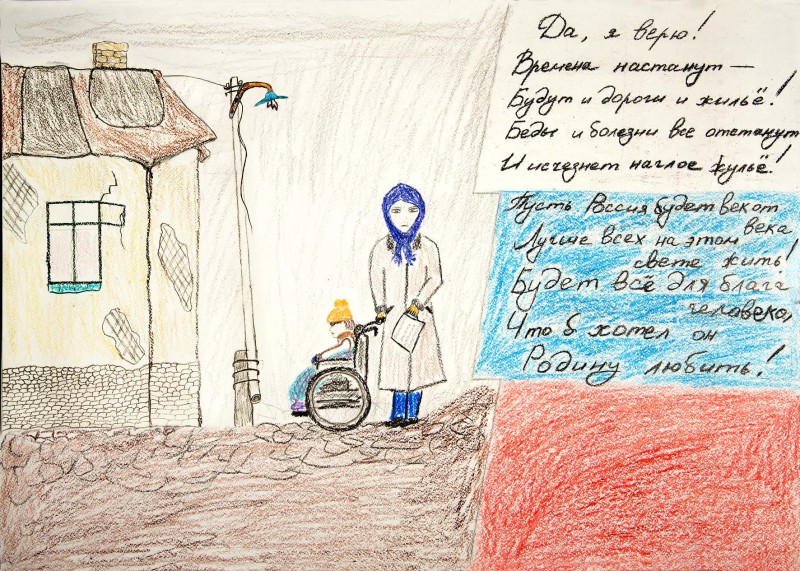 Да, я верю!
Времена настанут —
Будут и дороги и жильё!
Беды и болезни все отстанут
И исчезнет наглое жульё!
Пусть Россия будет век от
века
Лучше всех на этом
свете жить!
Будет всё для блага
человека,
Что б хотел он
Родину любить!